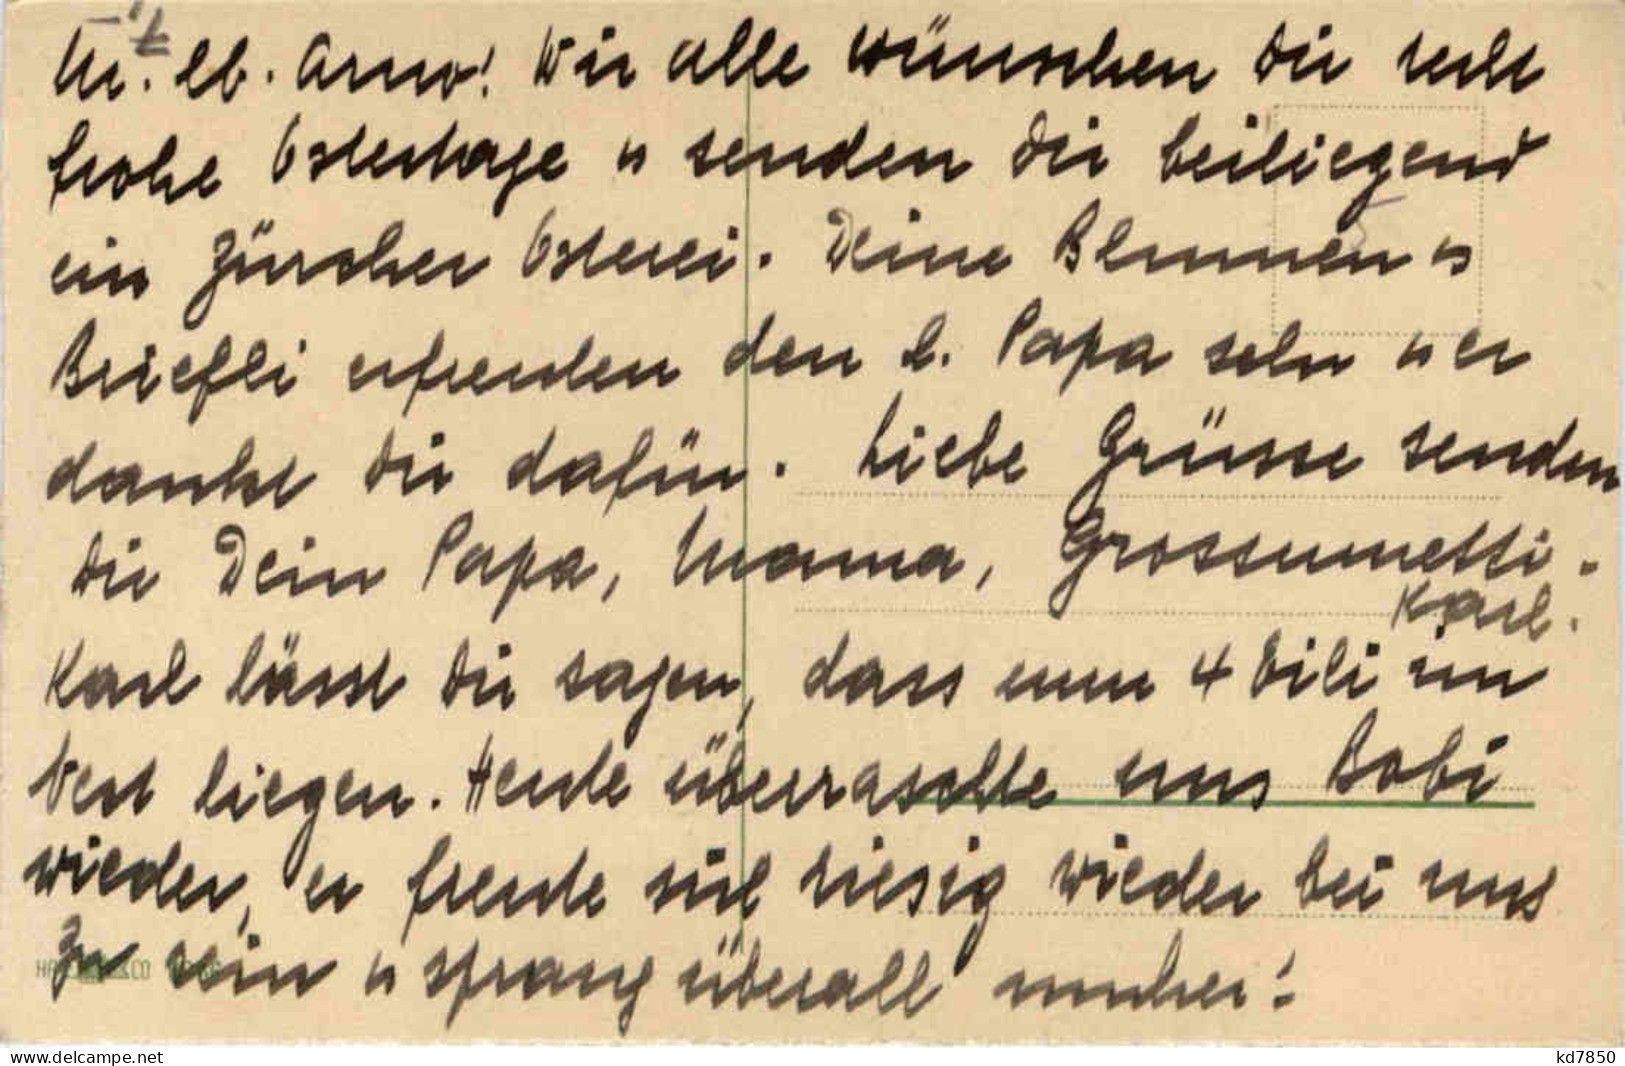 M. lb. Arno! Wir alle wünschen Dir recht
frohe Ostertage u senden Dir beiliegend
ein Zürcher Osterei. Deine Blumen u
Briefli erfreuten den l. Papa sehr u er
dankt Dir dafür. Liebe Grüsse senden
Dir Dein Papa, Mama, Grossmuetti.
Karl.
Karl lässt Dir sagen, dass nun 4 Eili im
Nest liegen. Heute überraschte uns Bobi
wieder, er freute sich riesig wieder bei uns
zu sein u sprang überall umher!
www.delcampe.net
kd7850